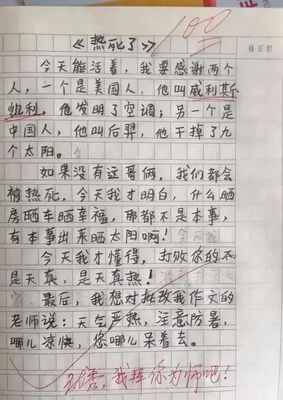 100
修正栏
《热死了》
今天能活着，我要感谢两个
人，一个是美国人，他叫威利斯
凯利，他发明了空调；另一个是
中国人，他叫后羿，他干掉了九
个太阳。
如果没有这哥俩，我们都会
被热死。今天我才明白，什么晒
房晒车晒幸福，那都不是本事，
有本事出来晒太阳啊！
今天我才懂得，打败你的不
是天真，是天真热！
最后，我想对批改我作文的
老师说：天气严热，注意防暑，
哪儿凉快，您哪儿呆着去。
我拜你为师吧！